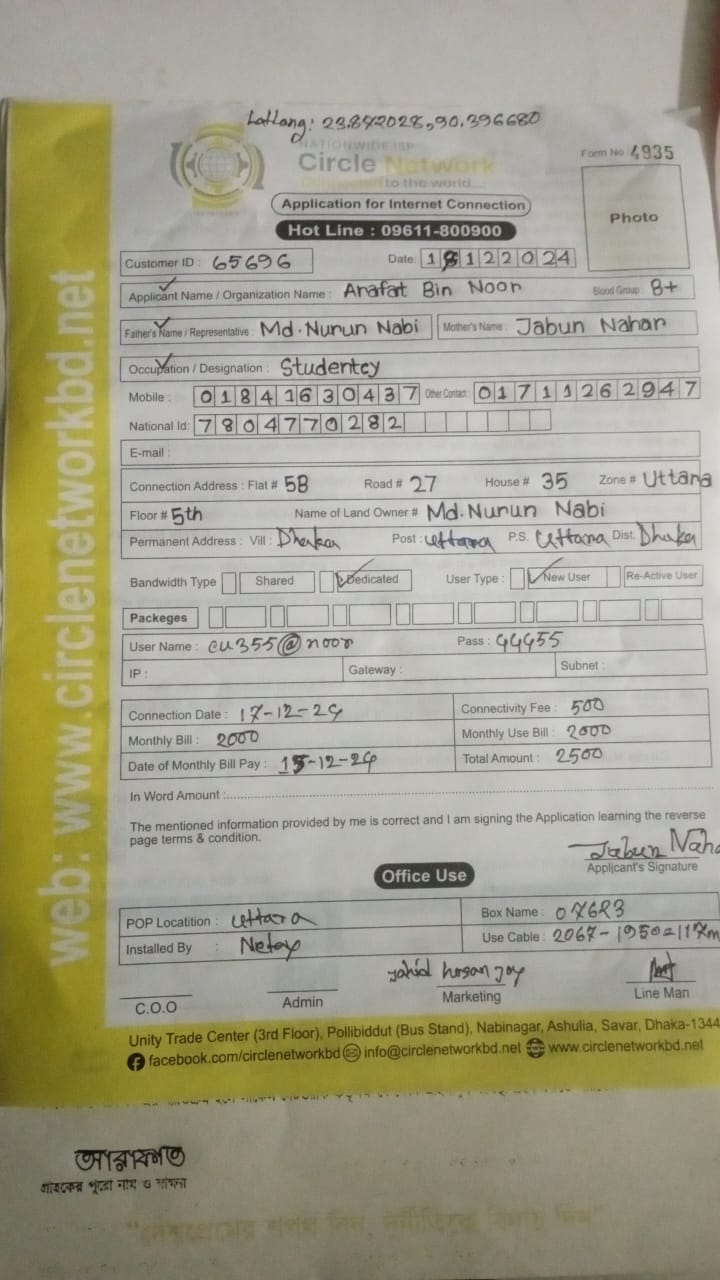 LatLong: 23.872028,90.396680
NATIONWIDE ISP
Circle Network
Connected to the world...
Form No 4935
Application for Internet Connection
Photo
Hot Line : 09611-800900
Customer ID : 65696
Date: 18122024
Applicant Name / Organization Name : Arafat Bin Noor Blood Group B+
Father's Name / Representative : Md. Nurun Nabi Mother's Name : Jabun Nahar
Occupation / Designation : Studentcy
Mobile : 01841630437 Other Contact: 01711262947
National Id: 7804770282
E-mail :
Connection Address : Flat # 5B Road # 27 House # 35 Zone # Uttara
Floor # 5th Name of Land Owner # Md. Nurun Nabi
Permanent Address : Vill : Dhaka Post : Uttara P.S. Uttara Dist. Dhaka
Bandwidth Type Shared Dedicated User Type : New User Re-Active User
Packeges
User Name : cu355@noor Pass : 44455
IP : Gateway : Subnet :
Connection Date : 17-12-24 Connectivity Fee : 500
Monthly Bill : 2000 Monthly Use Bill : 2000
Date of Monthly Bill Pay : 15-12-24 Total Amount : 2500
In Word Amount :
The mentioned information provided by me is correct and I am signing the Application learning the reverse
page terms & condition.
Jabun Naha
Applicant's Signature
Office Use
POP Locatition : Uttara Box Name : 076R3
Installed By : Use Cable : 2067-1950=117m
C.O.O Admin Marketing Line Man
Unity Trade Center (3rd Floor), Pollibiddut (Bus Stand), Nabinagar, Ashulia, Savar, Dhaka-1344
facebook.com/circlenetworkbd info@circlenetworkbd.net www.circlenetworkbd.net
web: www.circlenetworkbd.net
আরাফাত
গ্রাহকের পুরো নাম ও স্বাক্ষর
"দেশপ্রেমের শপথ নিন, দুর্নীতিকে বিদায় দিন"